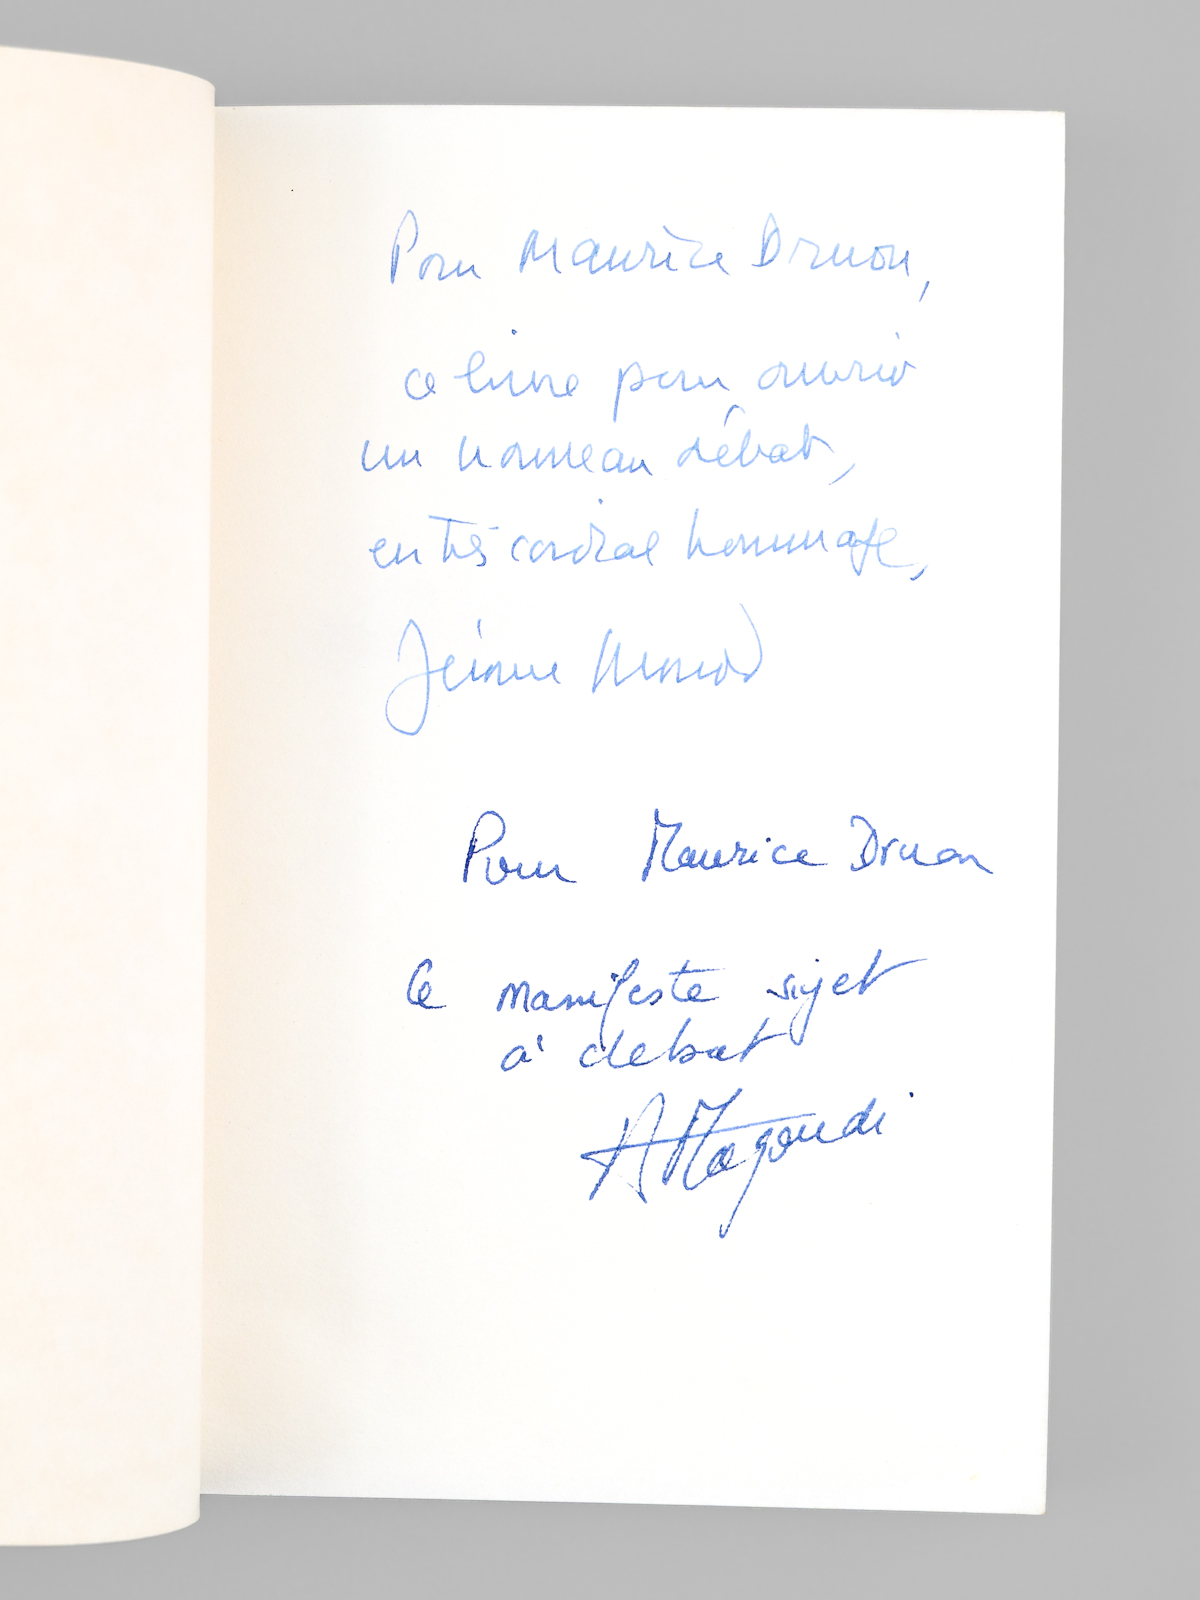 Pour Maurice Druon,
ce livre pour ouvrir
un nouveau débat,
en très cordial hommage,
Jérôme Monod
Pour Maurice Druon
Ce manifeste sujet
à débat
A Magoudi